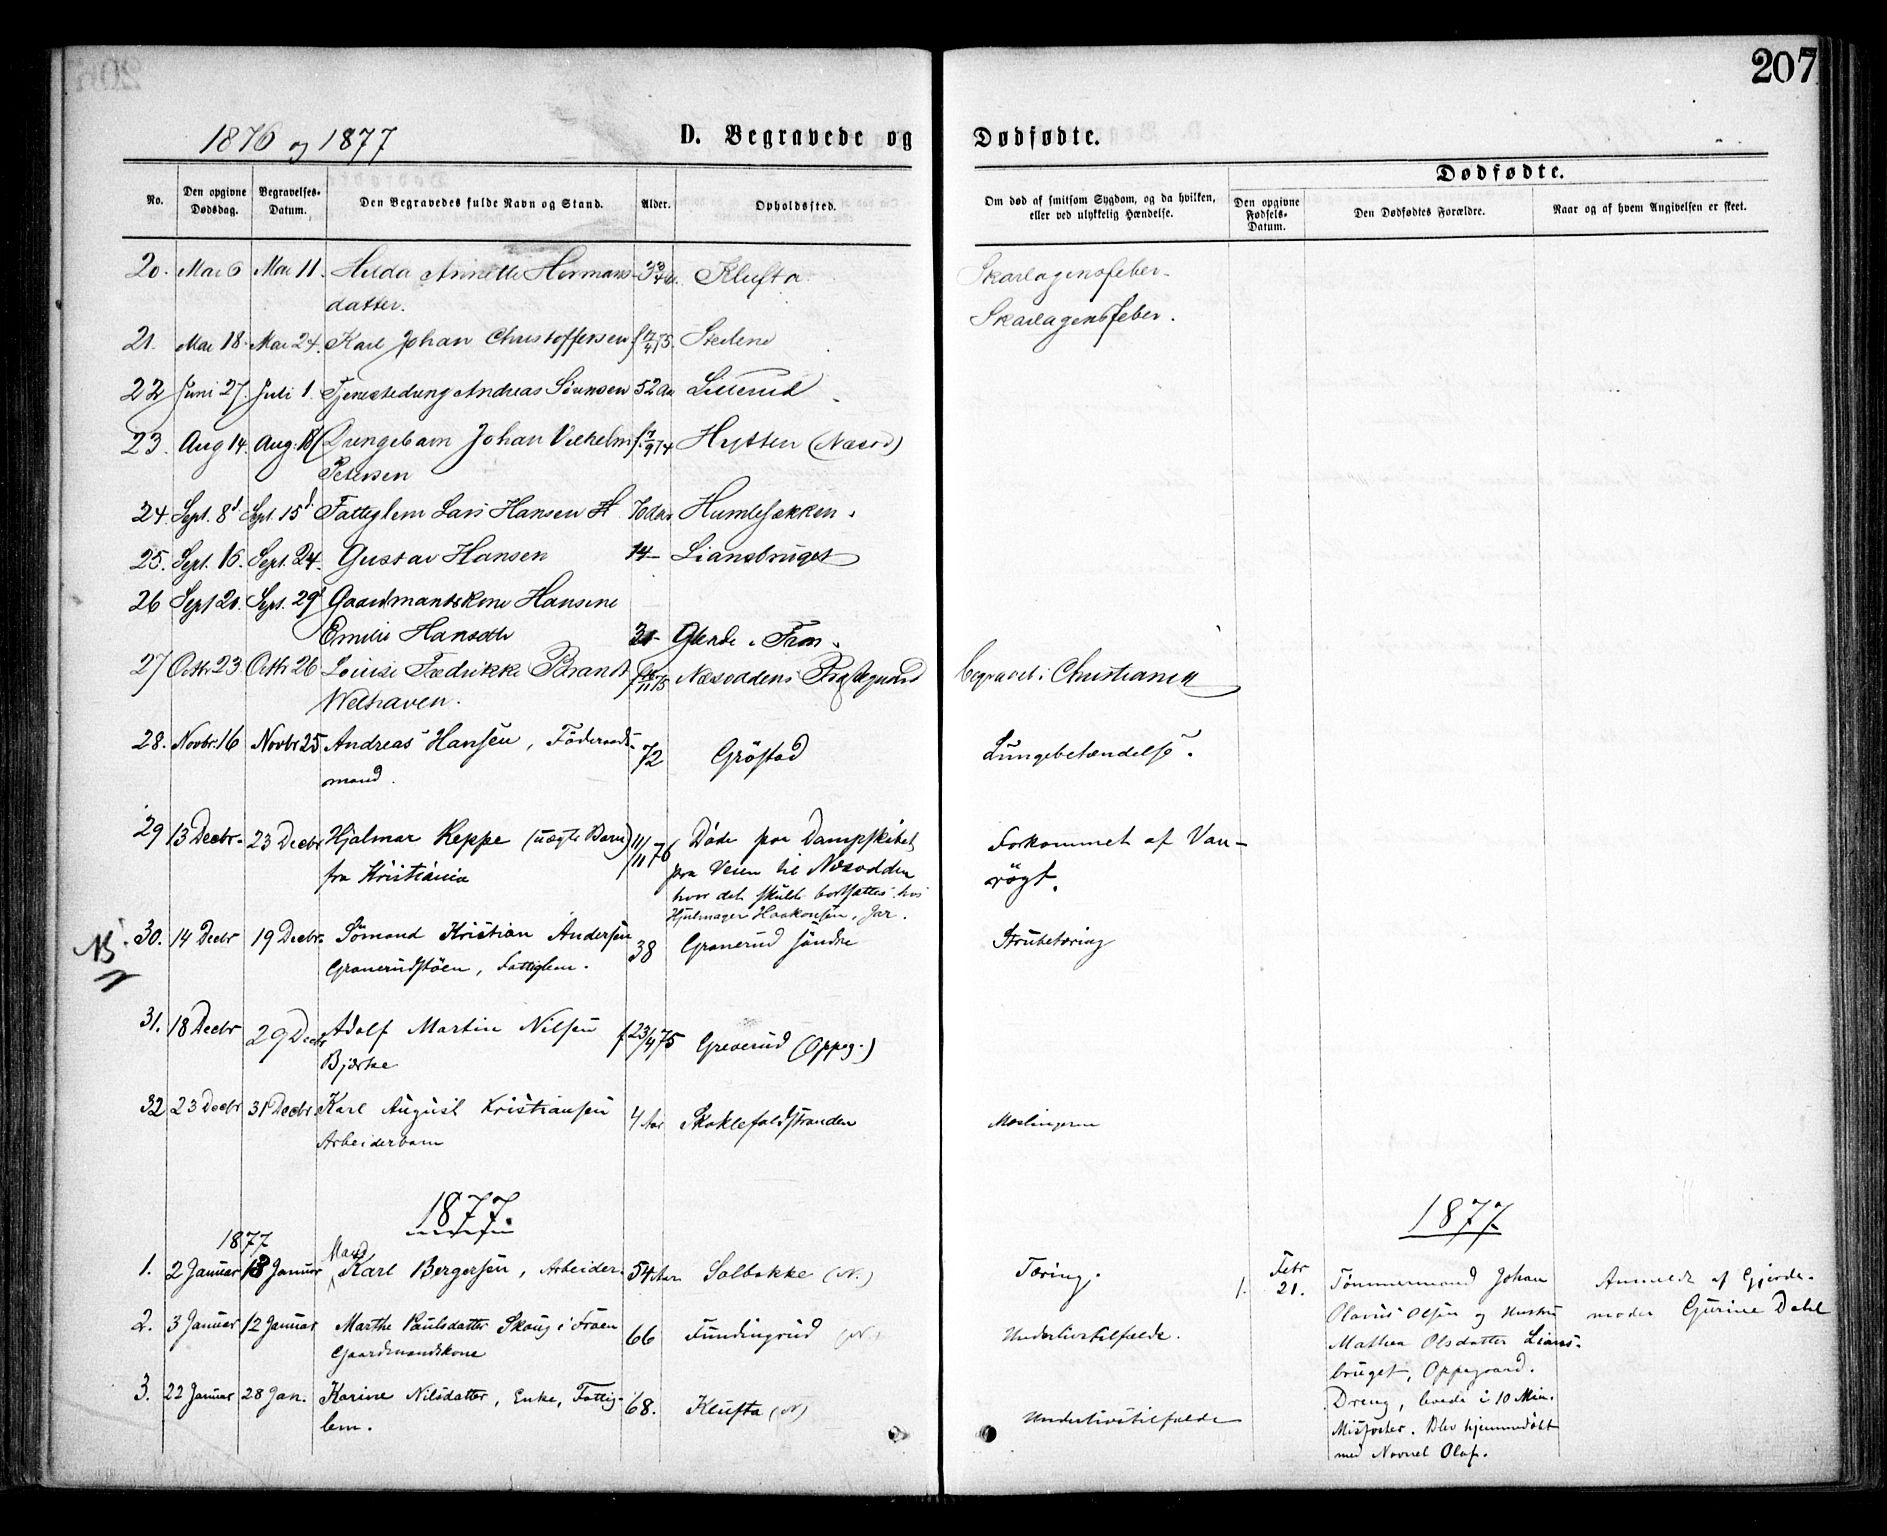 207
1876 og 1877
D. Begravede og Dødfødte.
Dødfødte.
No.
Den opgivne Dødsdag.
Begravelses-Datum.
Den Begravedes fulde Navn og Stand.
Alder.
Opholdssted.
Om død af smitsom Sygdom, og da hvilken, eller ved ulykkelig Hændelse.
Den opgivne Fødsels-Datum.
Den Dødfødtes Forældre.
Naar og af hvem Angivelsen er skeet.
20. Mai 6 Mai 11. Hilda Annette Hermans- Klufta Skarlagensfeber.
datter.
21. Mai 18. Mai 24. Karl Johan Christoffersen f 17/4 75. Steilene Skarlagensfeber.
22 Juni 27. Juli 1. Tjenestedreng Andreas Sörensen 52 Aar Lillerud
23. Aug 14. Aug. Drengebarn Johan Vilhelm f 7/9 74 Hytten (Næsod)
Petersen
24. Sept. 8d Sept. 15d. Fattiglem Lars Hansen 70 Aar Humlesækken.
25. Sept. 16. Sept. 24. Gustav Hansen 14 - Liansbruget
26 Sept 20. Sept. 29d Gaardmandskone Hansine
Emilie Hansdtr 31 - Gjerde i Fron.
27 Octbr. 23. Octbr 26 Louise Fredrikke Brandt Næsoddens Præstegaard begravet i Christiania
Welhaven.
28. Novbr. 16 Novbr 25 Andreas Hansen, Föderaads- 72 Gröstad Lungebetændelse.
mand.
29 13 Decbr. 23 Decbr Hjalmar Keppe (uægte Barn) 11/11 76 Døde paa Dampskibet Forkommet af Van-
fra Kristiania paa Veien til Næsodden rögt.
hvor det skulde bortsættes hos
Hjulmager Haakonsen, Jar.
NB. 30. 14 Decbr 19 Decbr. Sömand Kristian Andersen 38 Granerud söndre Strubetæring
Granerudstöen, Fattiglem.
31. 18 Decbr 29 Decbr Adolf Martin Nilsen f. 23/4 75 Greverud (Oppeg.)
Bjerke
32 23 Decbr 31 Decbr. Karl August Kristiansen 4 Aar Skoklefaldstranden Mæslingerne
Arbeiderbarn
1877.
1877
1877
1. 2 Januar 13 Januar Mand Karl Bergersen, Arbeider. 54 Aar Solbakke (N.) Tæring.
2. 3 Januar 12 Januar Marthe Paulsdatter Skoug i Froen 66 Fundingrud (N. Underlivstilfælde.
Gaardmandskone
3. 22 Januar 28 Jan. Karine Nilsdatter, Enke, Fattig- 68. Klufta (N) Underlivstilfælde
lem.
1. Febr 21. Tömmermand Johan Anmeldt af Gjorde-
Olavus Olsen og Hustru moder Gurine Dahl
Mathea Olsdatter Lians-
bruget, Oppegaard.
Dreng, levede i 10 Min.
Misfoster. Blev hjemmedöbt
med Navnet Olaf.